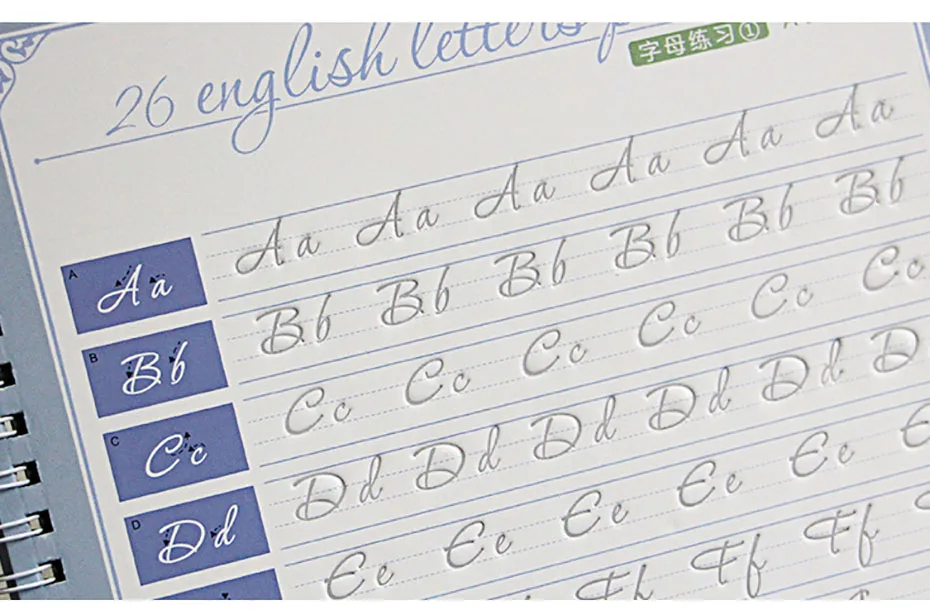 26 english letters
字母练习①
A
Aa Aa Aa Aa Aa Aa Aa
B
Bb Bb Bb Bb Bb Bb Bb
C
Cc Cc Cc Cc Cc Cc Cc
D
Dd Dd Dd Dd Dd Dd D
Ee Ee Ee Ee Ee
Ff Ff Ff